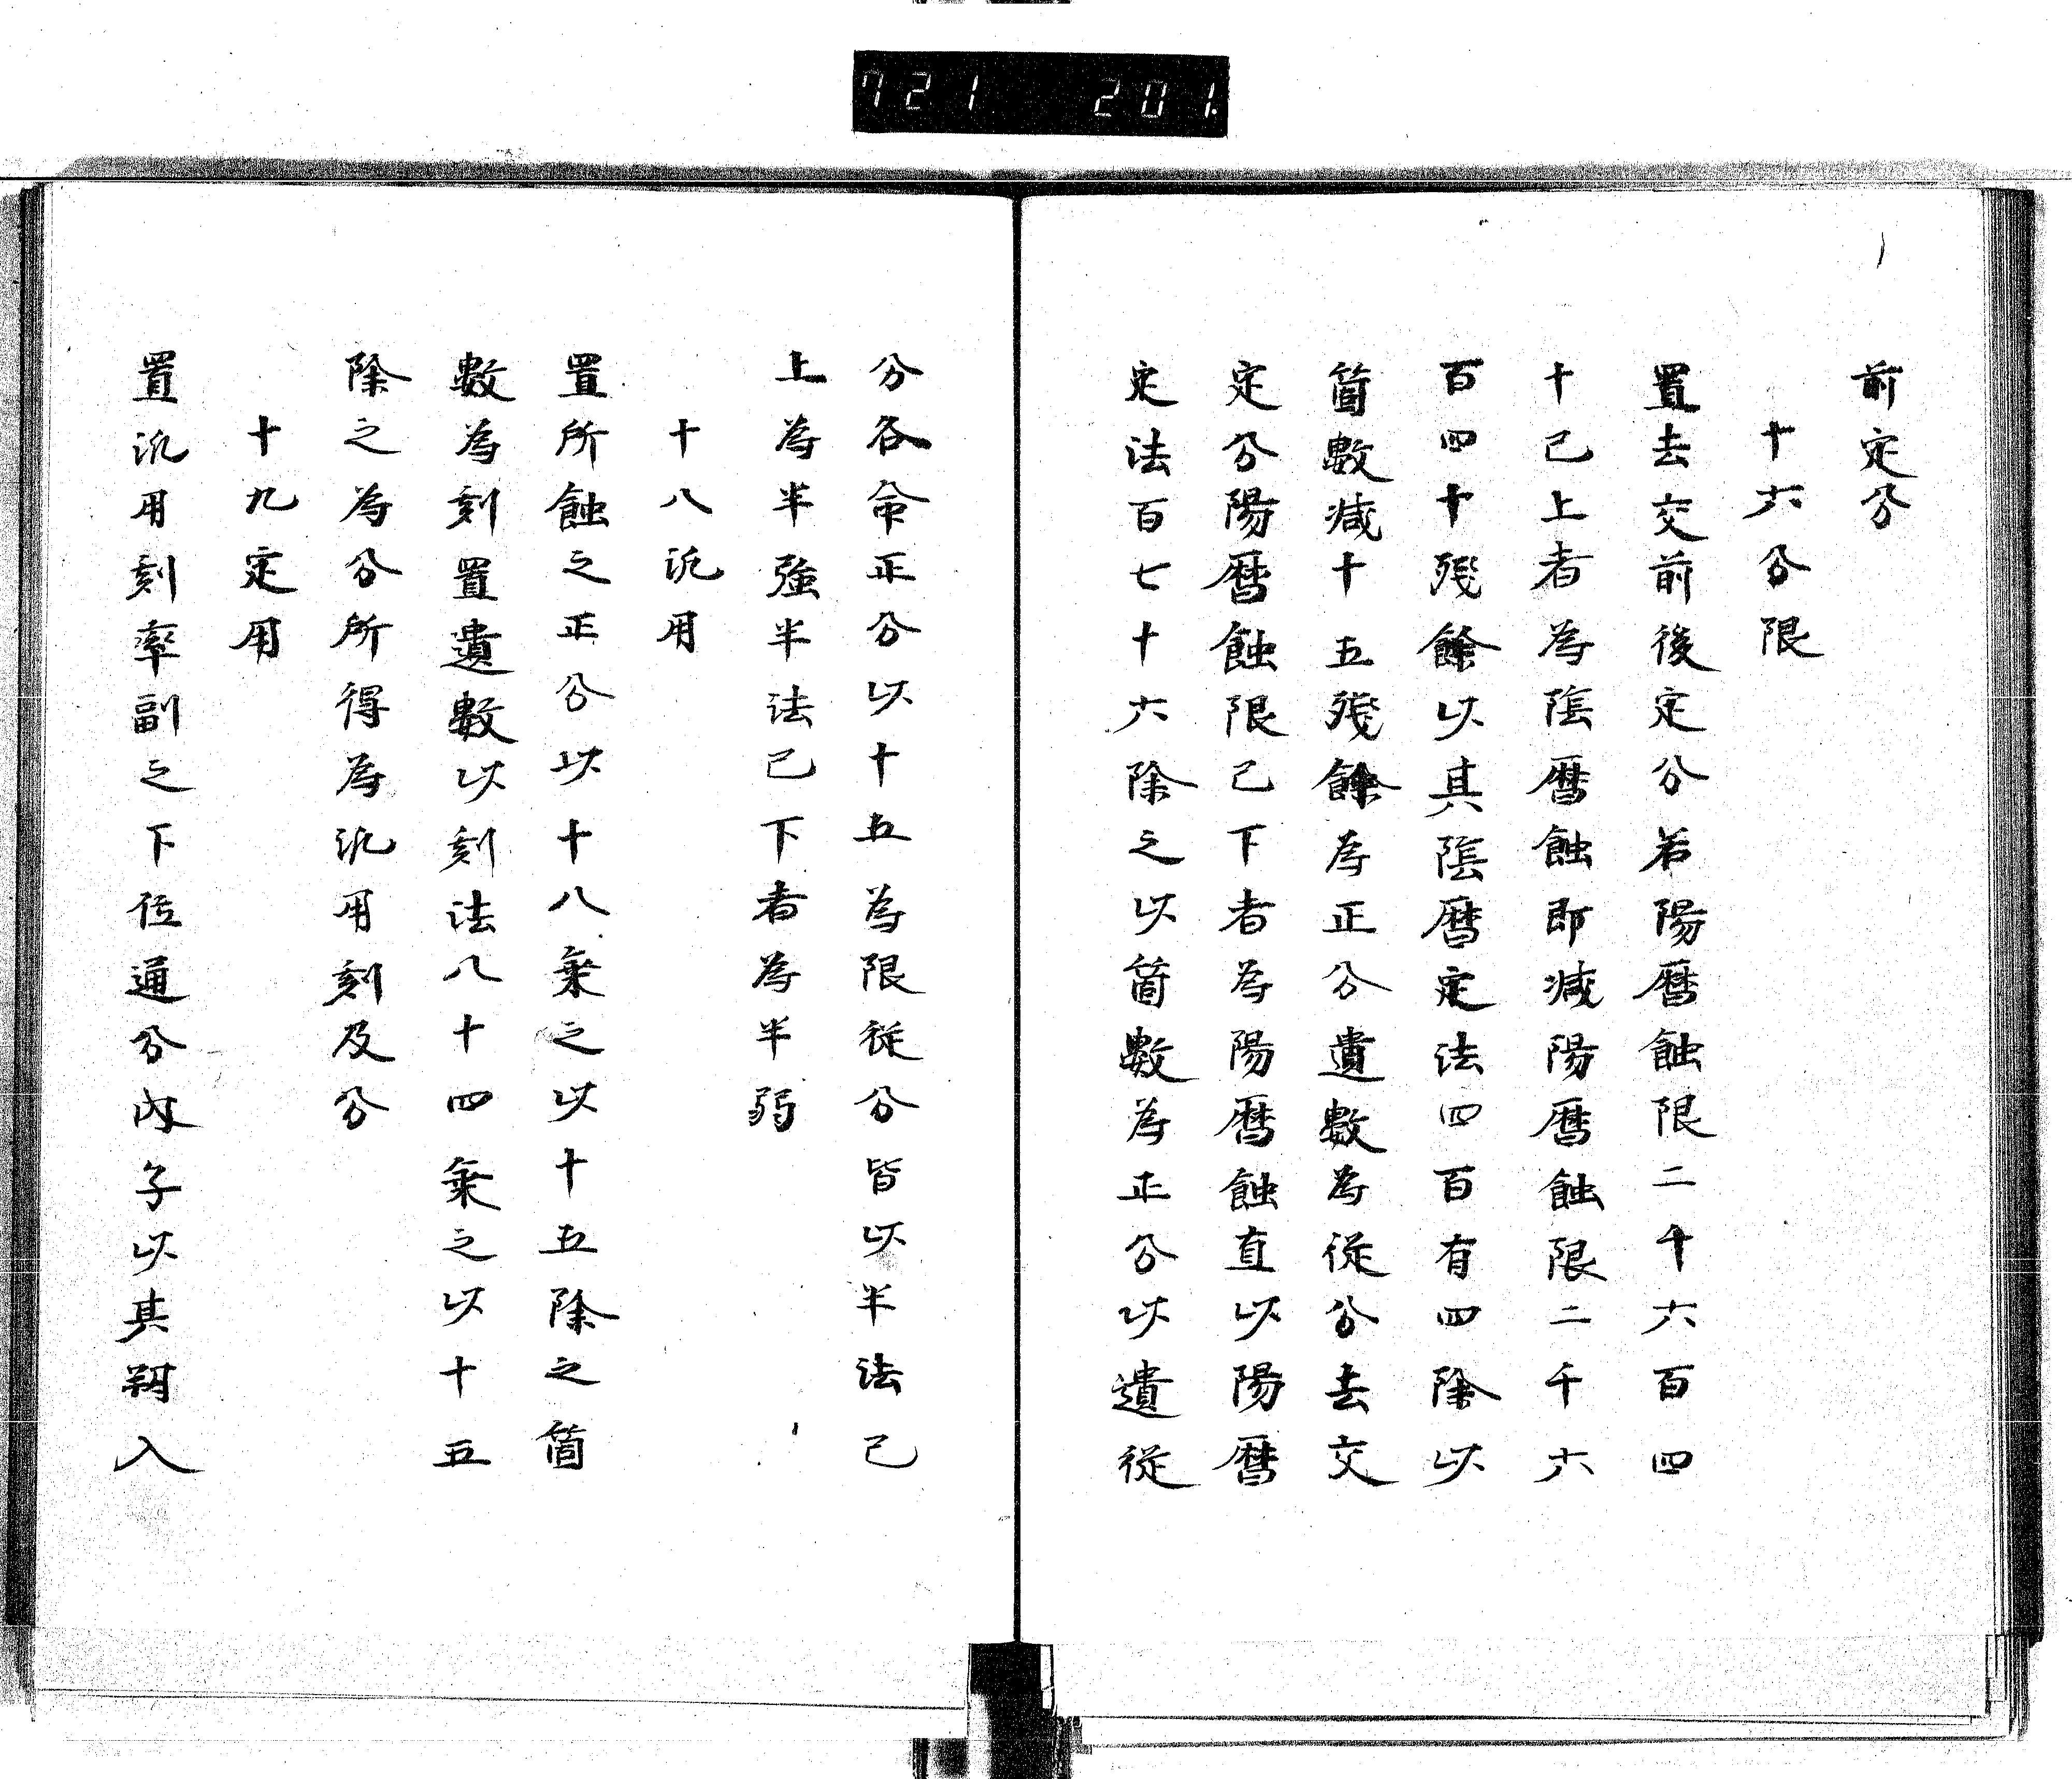 721 201
前定分
十六分限
置去交前後定分若陽暦蝕限二千六百四
十已上者為陰暦蝕即減陽暦蝕限二千六
百四十残餘以其陰暦定法四百有四除以
箇數減十五残餘為正分遺數為従分去交
定分陽暦蝕限已下者為陽暦蝕直以陽暦
定法百七十六除之以箇數為正分以遺従
分各命正分以十五為限従分皆以半法已
上為半強半法已下者為半弱
十八汎用
置所蝕之正分以十八乗之以十五除之箇
數為刻置遺數以刻法八十四乗之以十五
除之為分所得為汎用刻及分
十九定用
置汎用刻率副之下位通分内子以其朔入